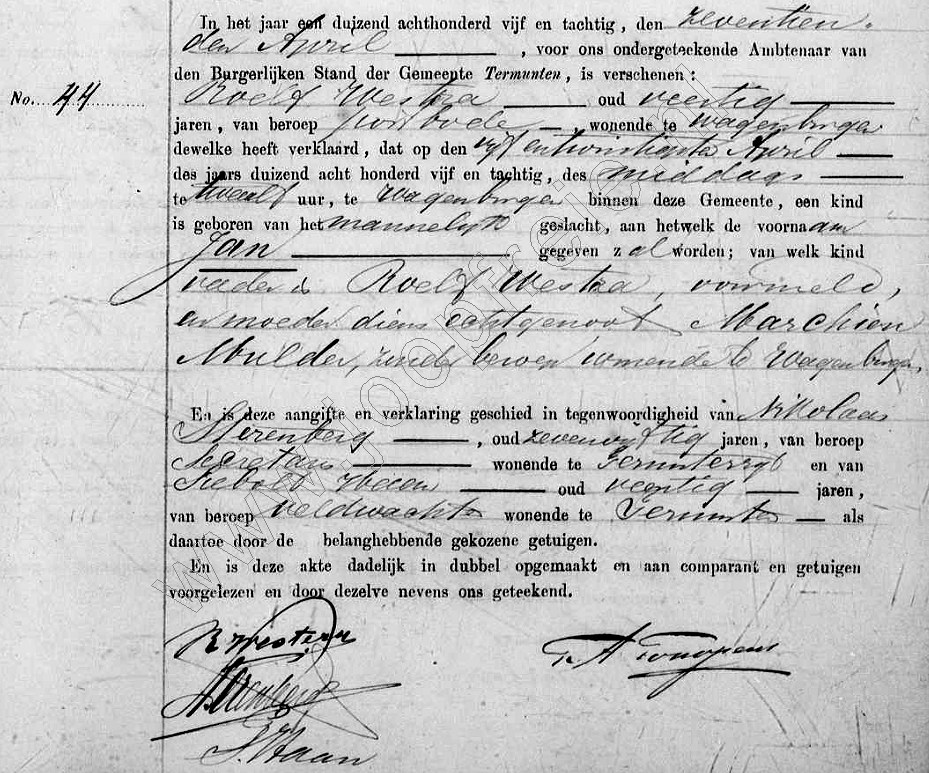 In het jaar een duizend achthonderd vijf en tachtig, den zeventien-
den April, voor ons ondergeteekende Ambtenaar van
den Burgerlijken Stand der Gemeente Termunten, is verschenen:
No. 44
Roelf Westra oud veertig
jaren, van beroep postbode, wonende te Wagenborgen
dewelke heeft verklaard, dat op den April
des jaars duizend acht honderd vijf en tachtig, des middags
te twaalf uur, te Wagenborgen binnen deze Gemeente, een kind
is geboren van het mannelijk geslacht, aan hetwelk de voornaam
Jan gegeven zal worden; van welk kind
vader is Roelf Westra, voormeld,
en moeder diens echtgenoot Marchien
Mulder, zonder beroep wonende te Wagenborgen.
En is deze aangifte en verklaring geschied in tegenwoordigheid van Nikolaas
Sterenberg, oud zevenvijftig jaren, van beroep
Secretaris wonende te Termunterzijl en van
Siebolt Haan oud veertig jaren,
van beroep veldwachter wonende te Termunten als
daartoe door de belanghebbende gekozene getuigen.
En is deze akte dadelijk in dubbel opgemaakt en aan comparant en getuigen
voorgelezen en door dezelve nevens ons geteekend.
R Westra
NSterenberg
S. Haan